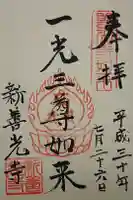 奉拝
平成三十年
七月二十六日
一光三尊如来
新善光寺